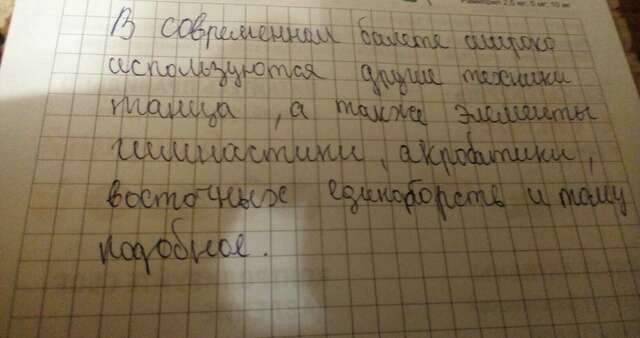 Размером 2,5 мг, 5 мг, 10 мг
В современном балете широко
используются другие техники
танца , а также элементы
гимнастики , акробатики ,
восточных единоборств и тому
подобное .